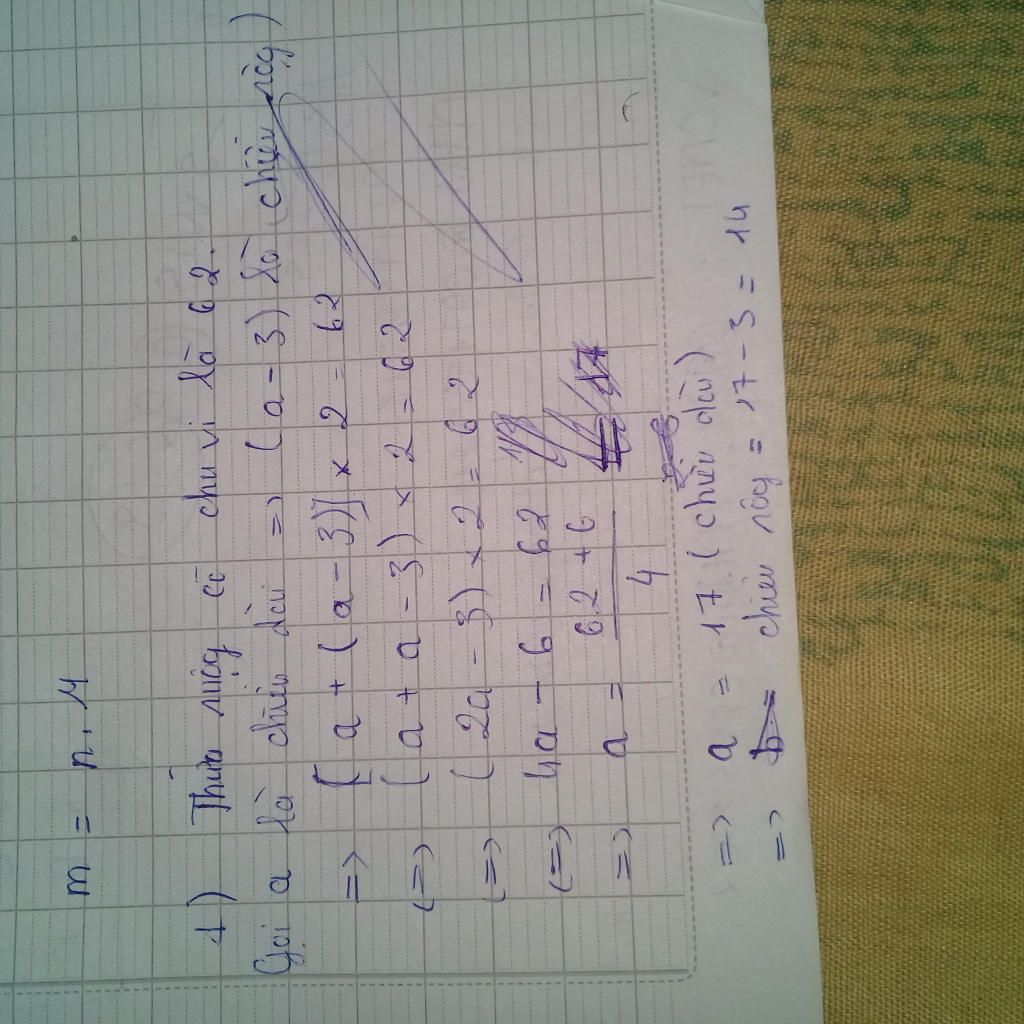 m = n . M
1) Thửa ruộg có chu vi là 62.
Gọi a là chiều dài => (a - 3) là chiều rộg)
=> [a + (a - 3)] x 2 = 62
(=> (a + a - 3) x 2 = 62
(=> (2a - 3) x 2 = 62
(=> 4a - 6 = 62
=> a = 62 + 6
4
=> a = 17 (chiều dài)
=> chiều rộg = 17 - 3 = 14